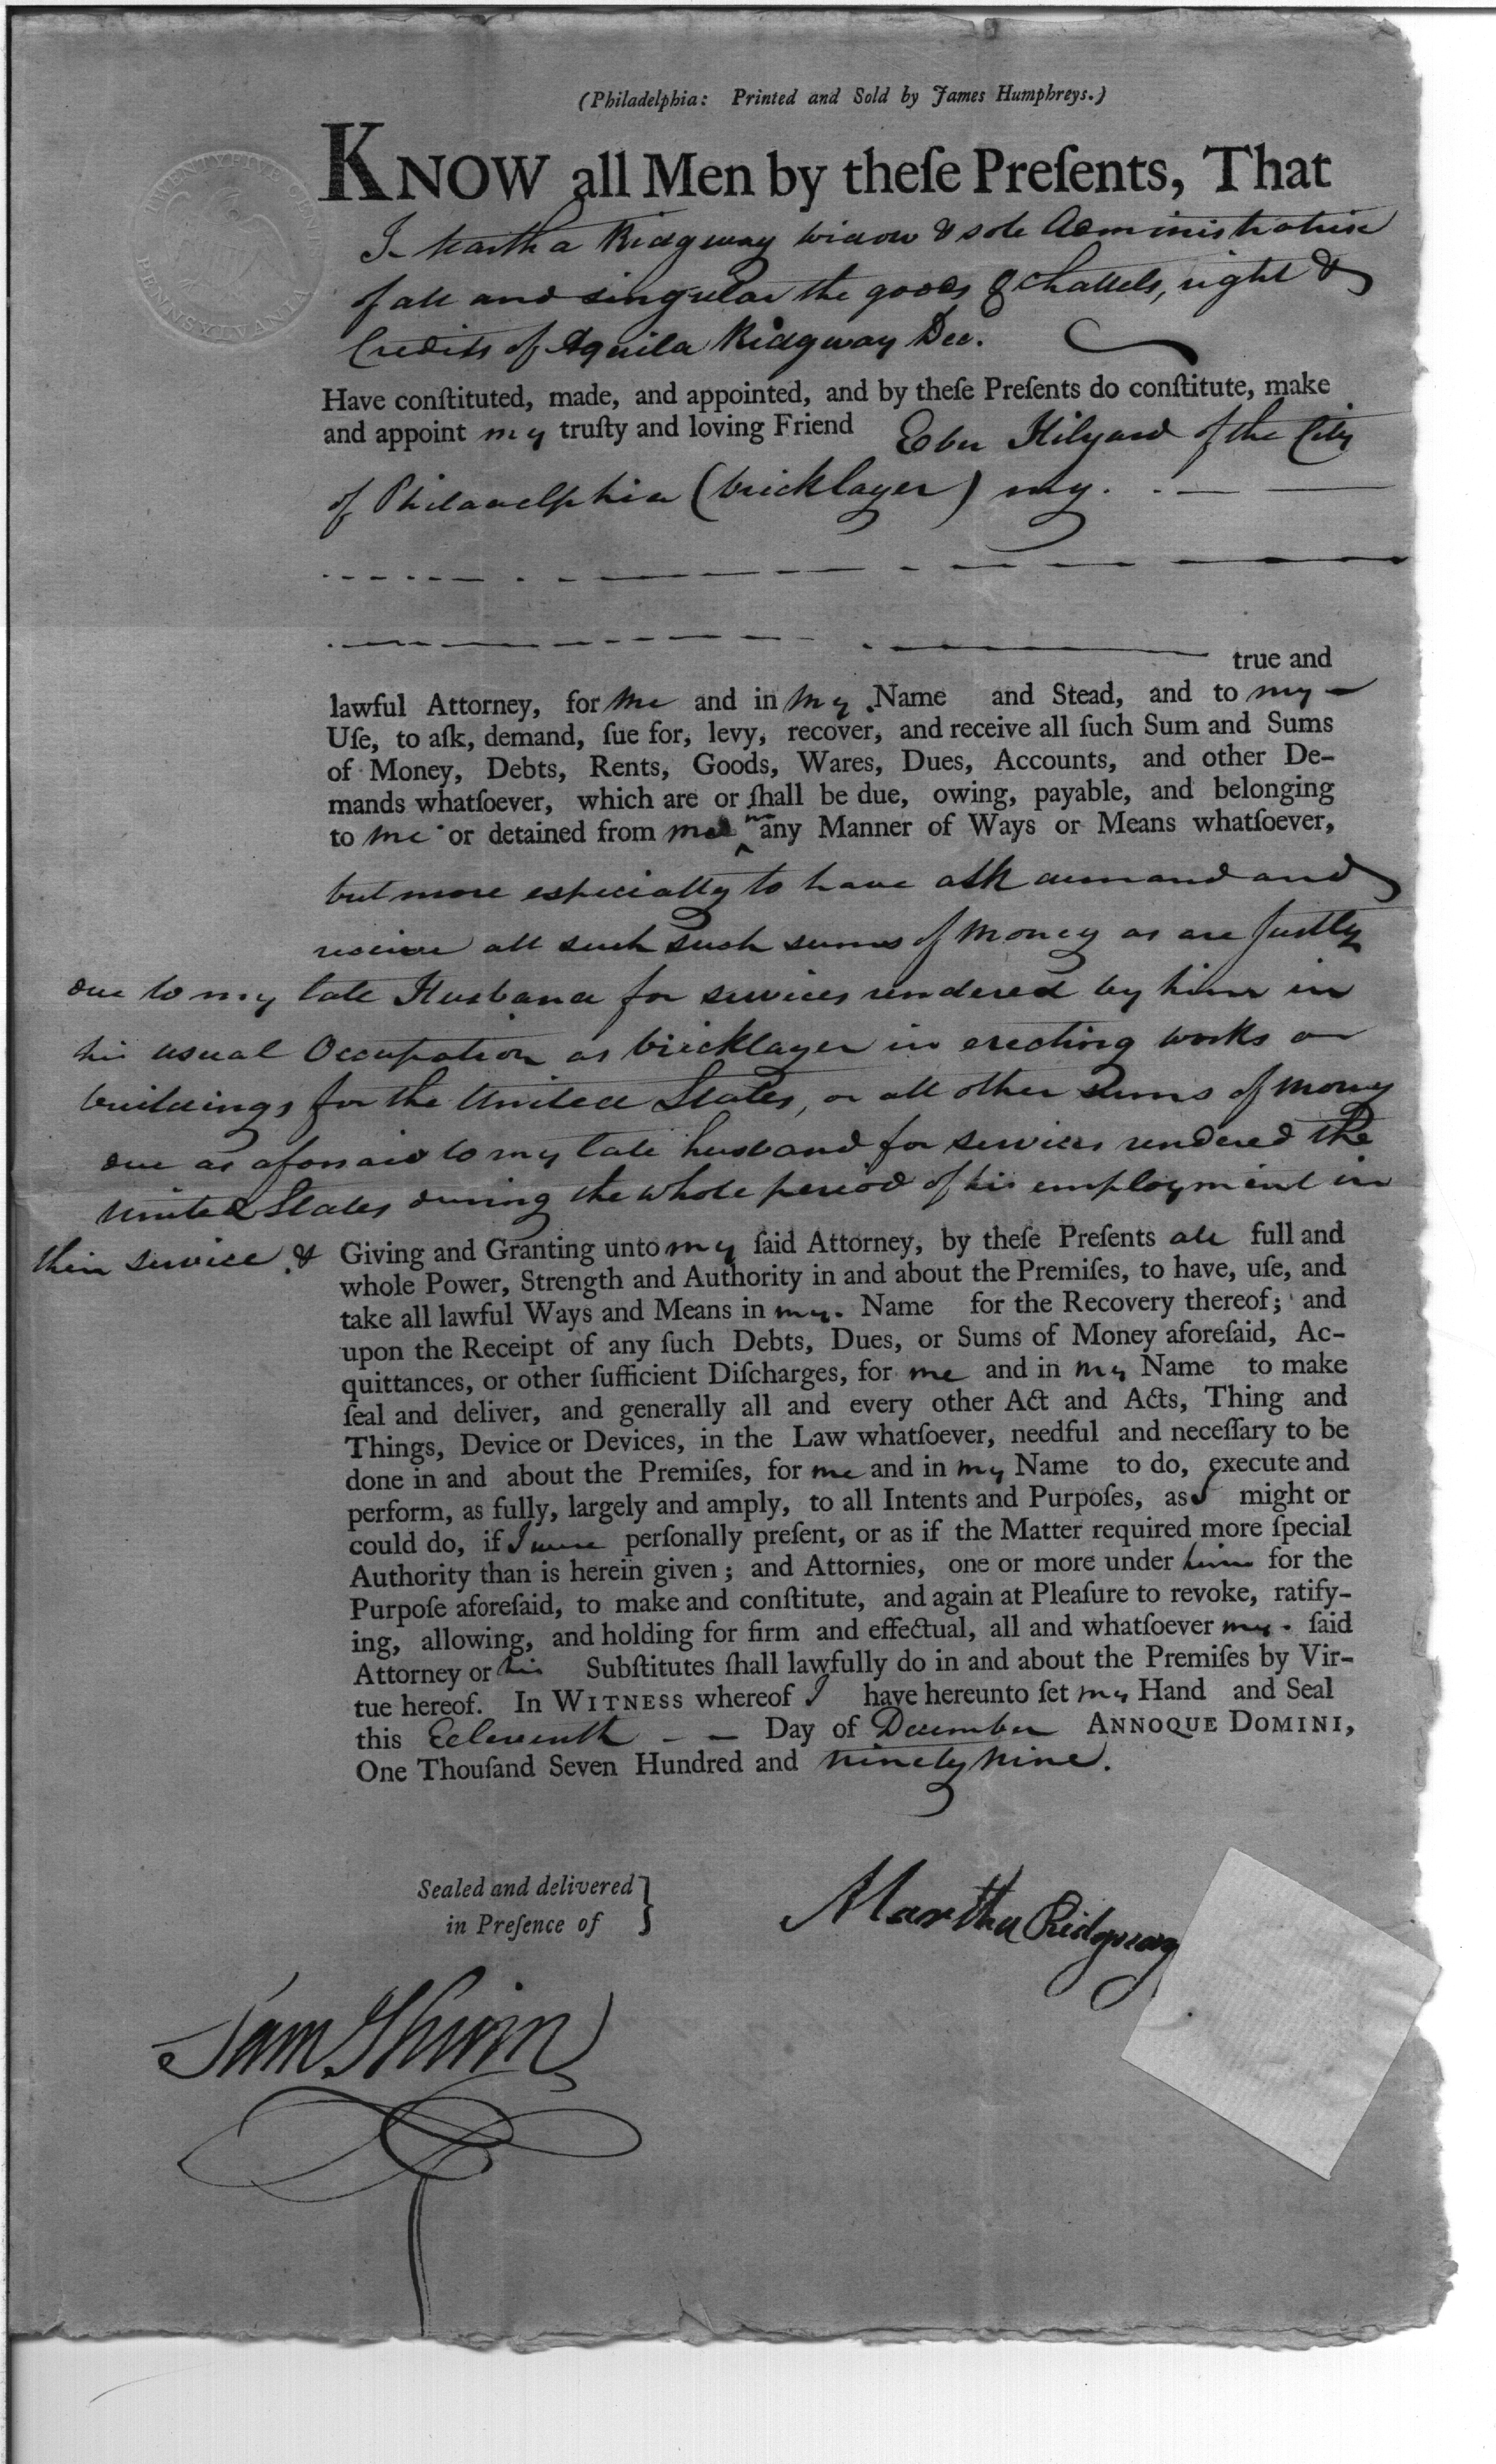 (Philadelphia: Printed and Sold by James Humphreys.)
KNOW all Men by theſe Preſents, That
I Martha Ridgway widow & sole Administratrix
of all and singular the goods & Chattels, right &
Credits of Aquila Ridgway Dec.
Have conſtituted, made, and appointed, and by theſe Preſents do conſtitute, make
and appoint my truſty and loving Friend Eber Hilyard of the City
of Philadelphia (bricklayer) my
true and
lawful Attorney, for me and in my Name and Stead, and to my
Uſe, to aſk, demand, ſue for, levy, recover, and receive all ſuch Sum and Sums
of Money, Debts, Rents, Goods, Wares, Dues, Accounts, and other De-
mands whatſoever, which are or ſhall be due, owing, payable, and belonging
to me or detained from me any Manner of Ways or Means whatſoever,
but more especially to have ask demand and
receive all such such sums of Money as are Justly
due to my late Husband for services rendered by him in
his usual Occupation as bricklayer in erecting works or
buildings for the United States, or all other sums of Money
due as aforsaid to my late husband for services rendered the
United States during the whole period of his employment in
their service & Giving and Granting unto my ſaid Attorney, by theſe Preſents all full and
whole Power, Strength and Authority in and about the Premiſes, to have, uſe, and
take all lawful Ways and Means in my Name for the Recovery thereof; and
upon the Receipt of any ſuch Debts, Dues, or Sums of Money aforeſaid, Ac-
quittances, or other ſufficient Diſcharges, for me and in my Name to make
ſeal and deliver, and generally all and every other Act and Acts, Thing and
Things, Device or Devices, in the Law whatſoever, needful and neceſſary to be
done in and about the Premiſes, for me and in my Name to do, execute and
perform, as fully, largely and amply, to all Intents and Purpoſes, as I might or
could do, if I were perſonally preſent, or as if the Matter required more ſpecial
Authority than is herein given; and Attornies, one or more under him for the
Purpoſe aforeſaid, to make and conſtitute, and again at Pleaſure to revoke, ratify-
ing, allowing, and holding for firm and effectual, all and whatſoever my ſaid
Attorney or his Subſtitutes ſhall lawfully do in and about the Premiſes by Vir-
tue hereof. In WITNESS whereof I have hereunto ſet my Hand and Seal
this Eeleventh Day of December ANNOQUE DOMINI,
One Thouſand Seven Hundred and ninety nine.
Sealed and delivered
in Preſence of
Martha Ridgway
Sam
TWENTY FIVE CENTS
PENNSYLVANIA